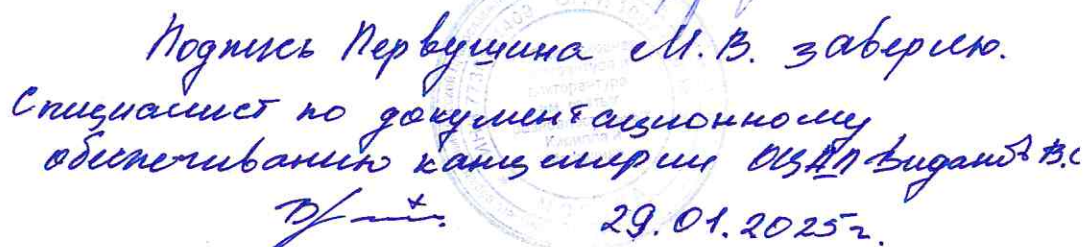 Подпись Первушина М.В. заверяю.
Специалист по документационному
обеспечиванию канцелярии ОЦАД Виданов В.С
29.01.2025г.